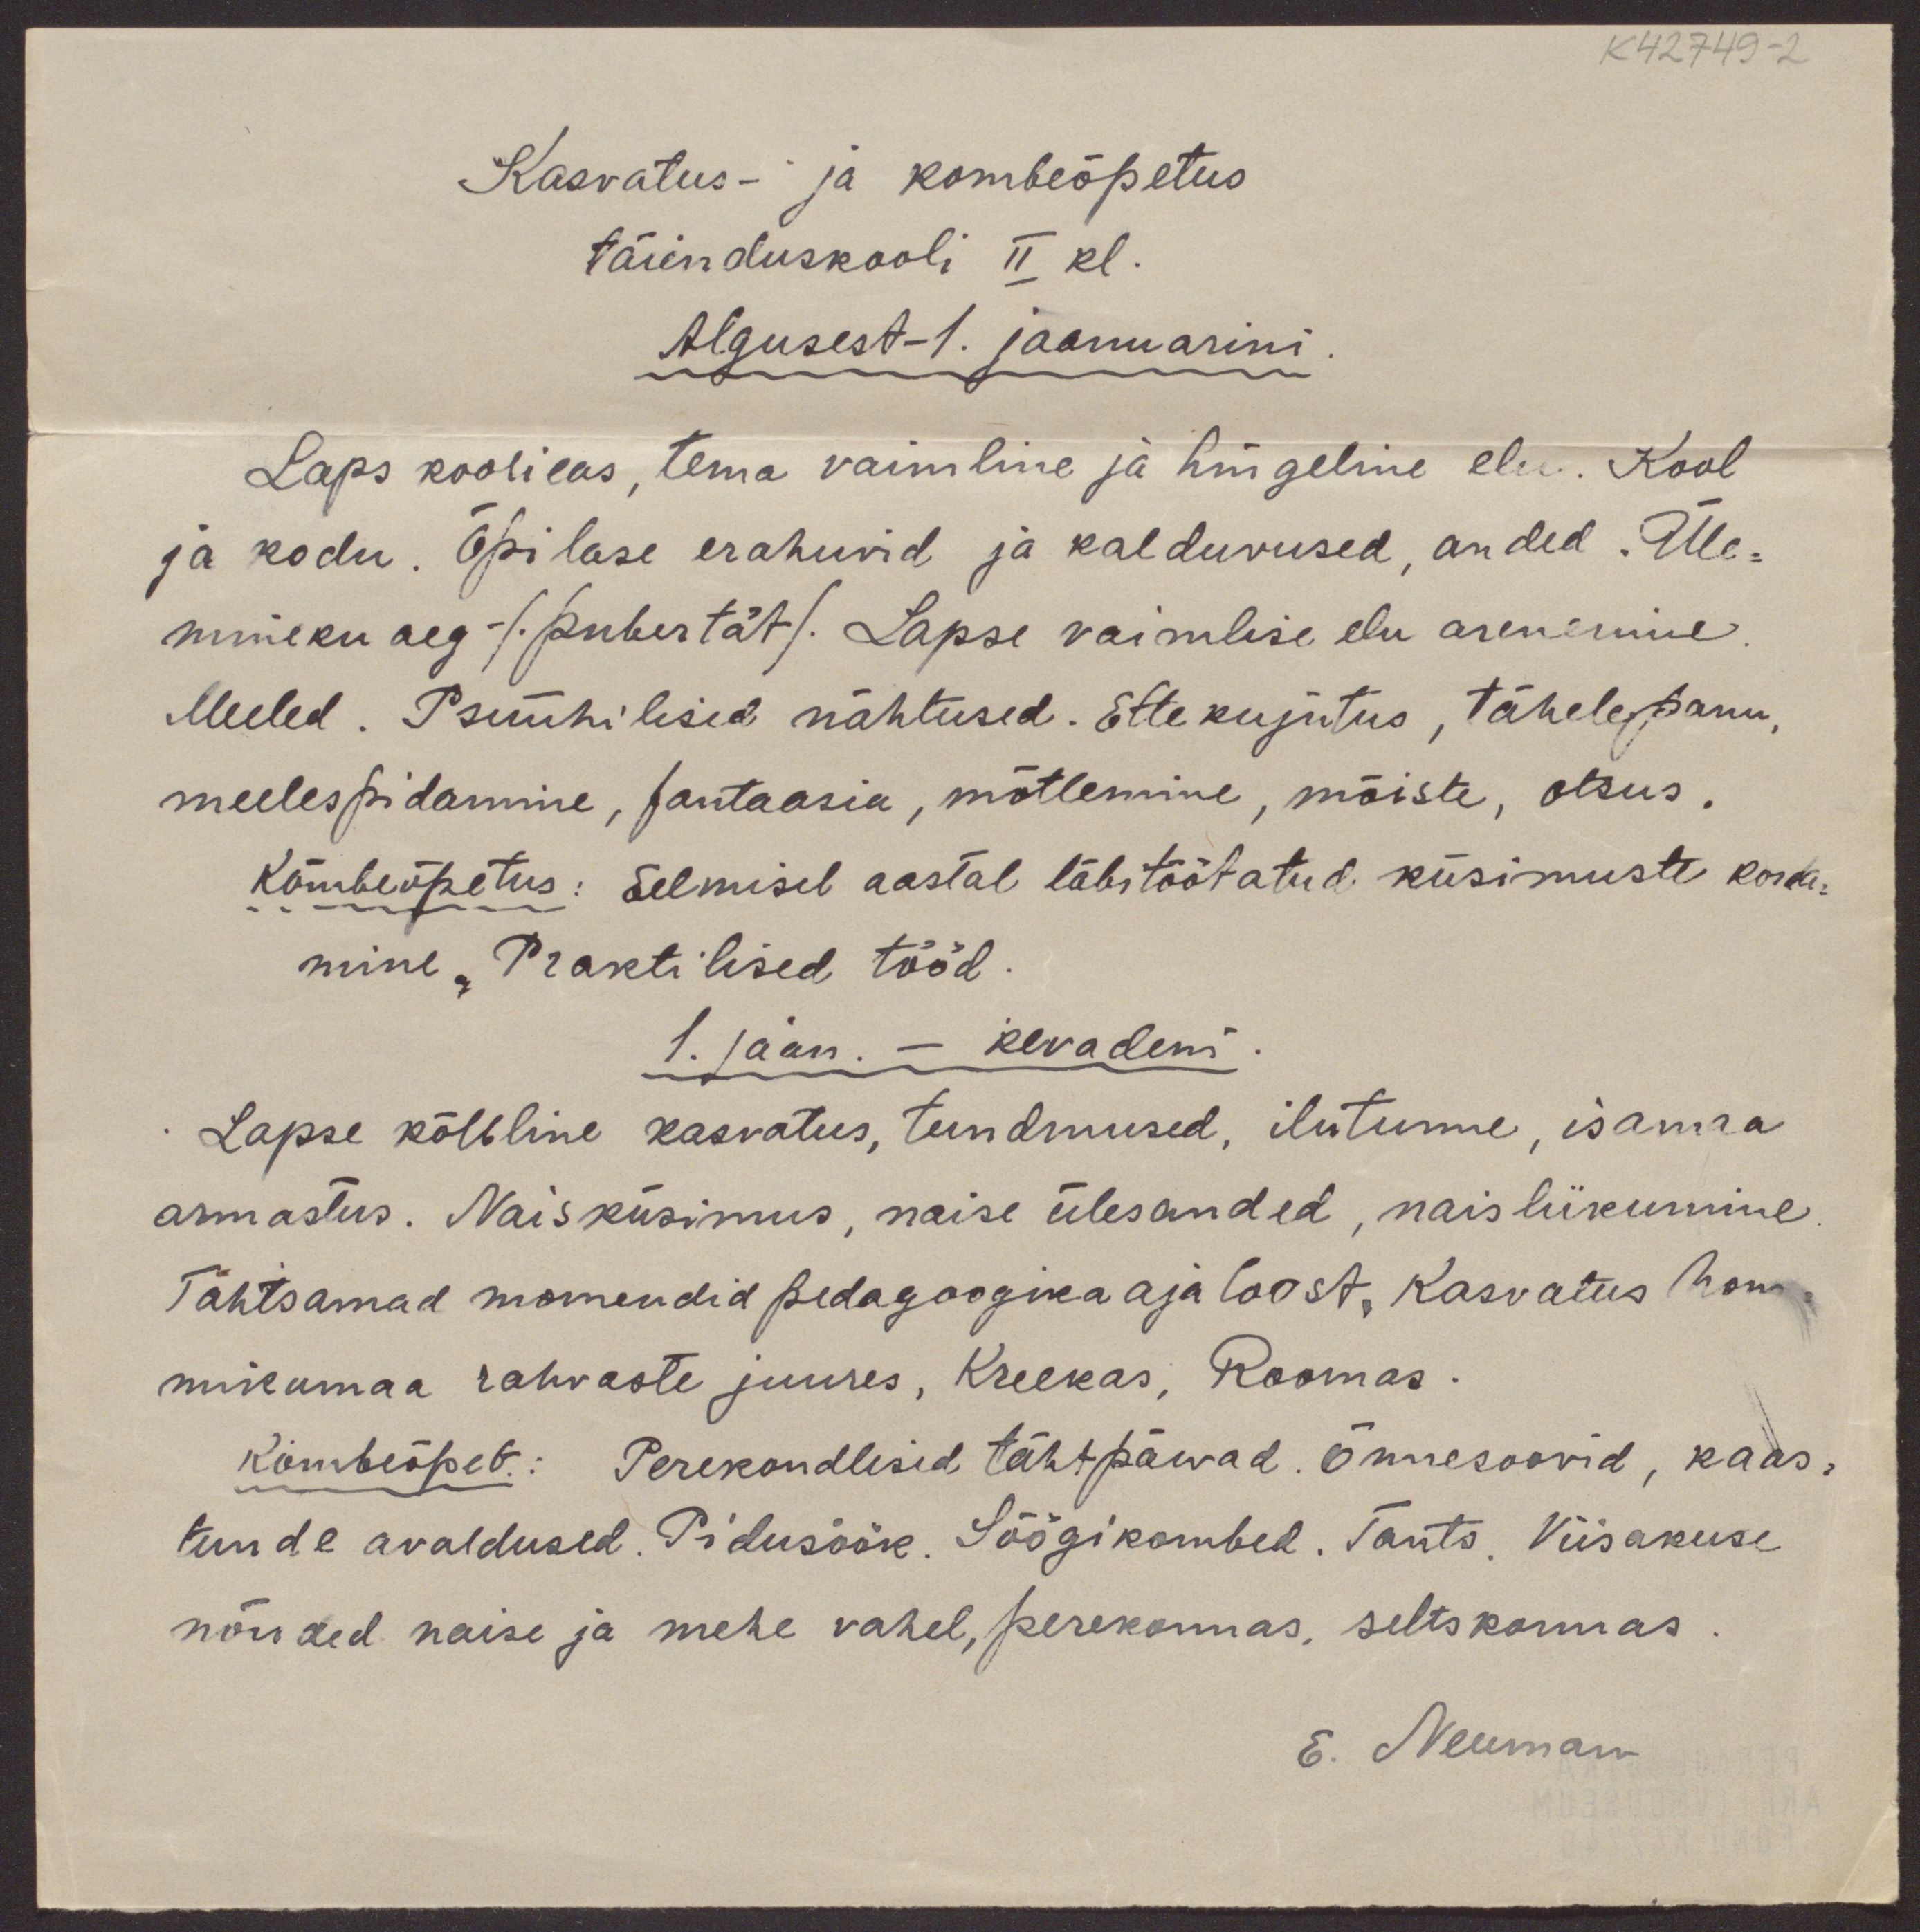 K42749-2
Kasvatus- ja kombeõpetus
täienduskooli II kl.
Algusest-1. jaanuarini.
Laps koolieas, tema vaimline ja hingeline elu. Kool
ja kodu. Õpilase erahuvid ja kalduvused, anded. Üle=
mineku aeg -/.pubertät/. Lapse vaimlise elu arenemine.
Meeled. Psüühilised nähtused. Ettekujutus, tähelepanu,
meelespidamine, fantaasia, mõtlemine, mõiste, otsus.
Kombeõpetus: Eelmisel aastal läbitöötatud küsimuste korda=
mine. Praktilised tööd.
1. jaan. - kevadeni.
Lapse kõlbline kasvatus, tundmused, ilutunne, isamaa
armastus. Naisküsimus, naise ülesanded, naisliikumine.
Tähtsamad momendid pedagoogika ajaloost. Kasvatus hom=
mikumaa rahvaste juures, Kreekas, Roomas.
Kombeõpet.: Perekondlisid tähtpäevad. Õnnesoovid, kaas=
tunde avaldused. Pidusöök. Söögikombed. Tants. Viisakuse
nõuded naise ja mehe vahel, perekonnas, seltskonnas.
E. Neuman